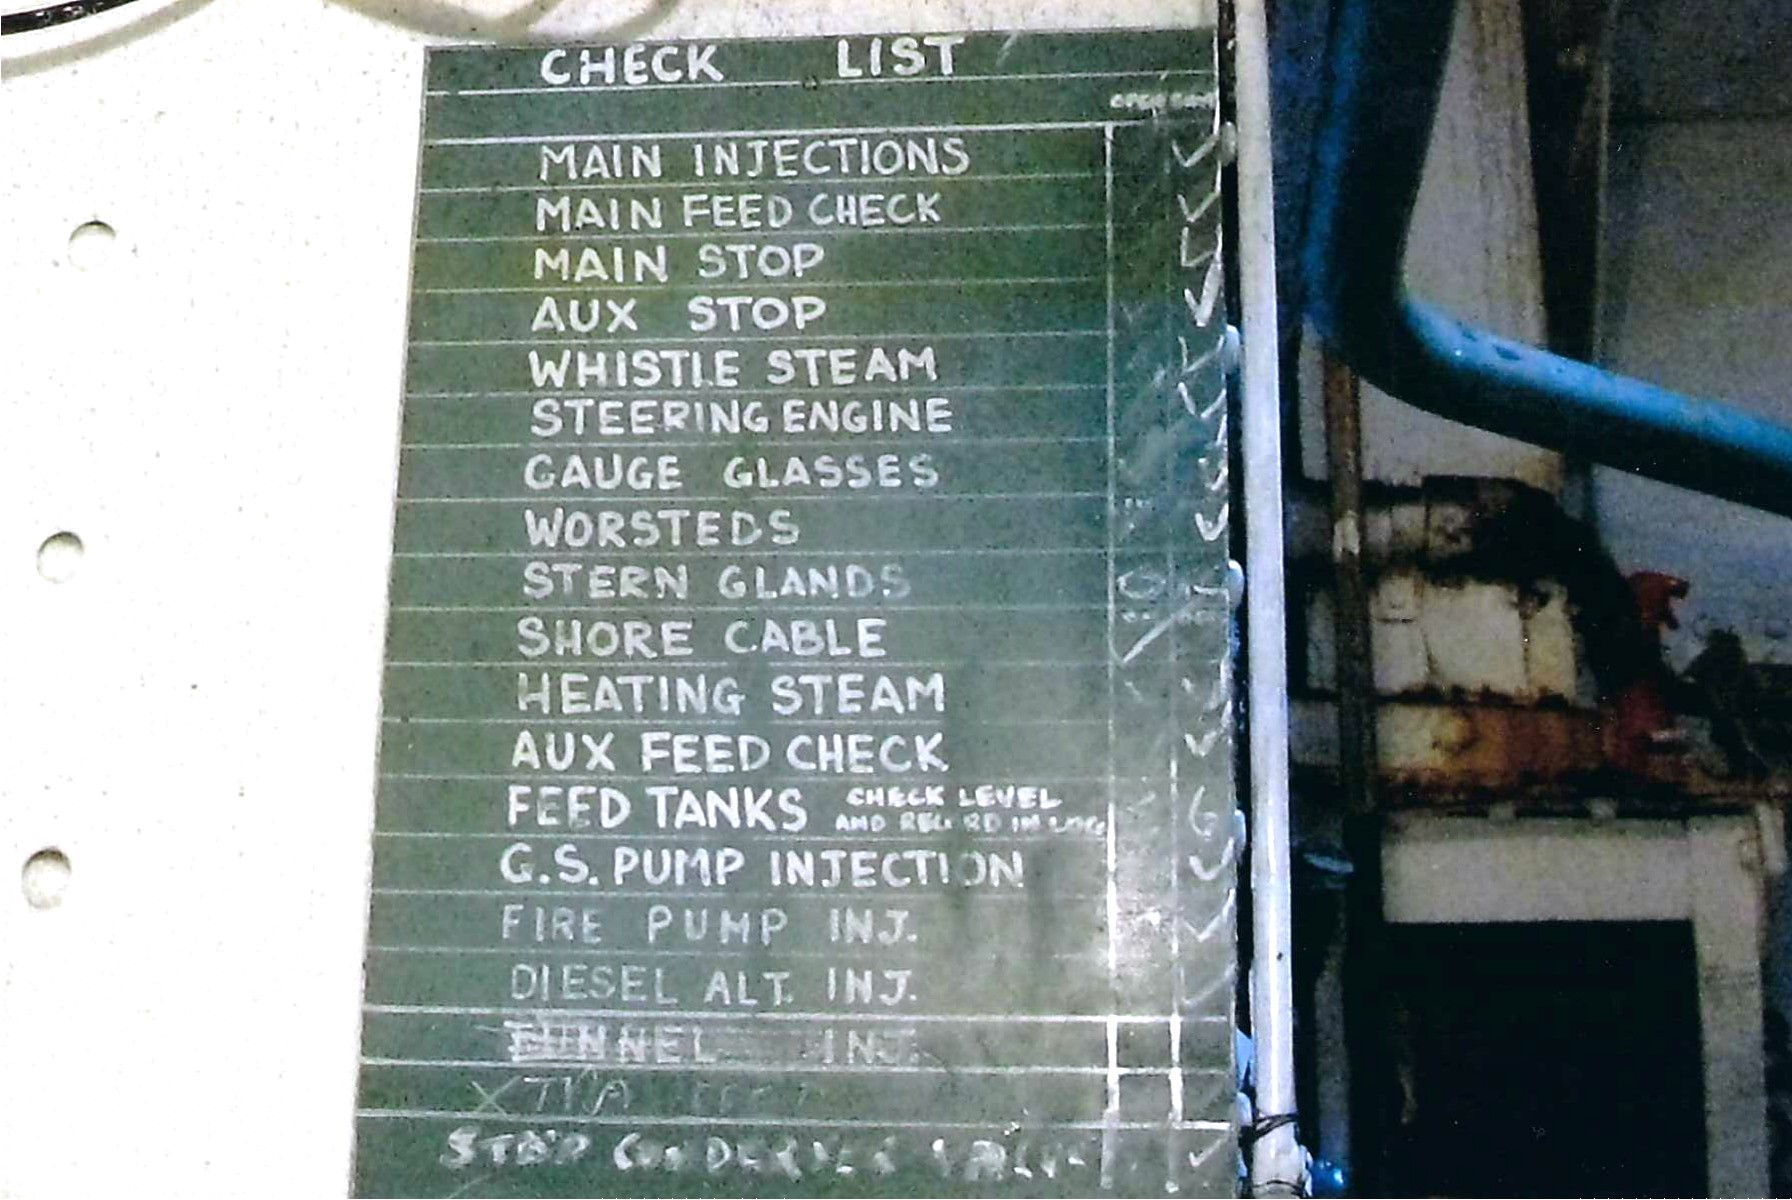 CHECK LIST
MAIN INJECTIONS
MAIN FEED CHECK
MAIN STOP
AUX STOP
WHISTLE STEAM
STEERING ENGINE
GAUGE GLASSES
WORSTEDS
STERN GLANDS
SHORE CABLE
HEATING STEAM
AUX FEED CHECK
FEED TANKS CHECK LEVEL
AND RECORD IN
G.S. PUMP INJECTION
FIRE PUMP INJ.
DIESEL ALT. INJ.
INJ.
STOP